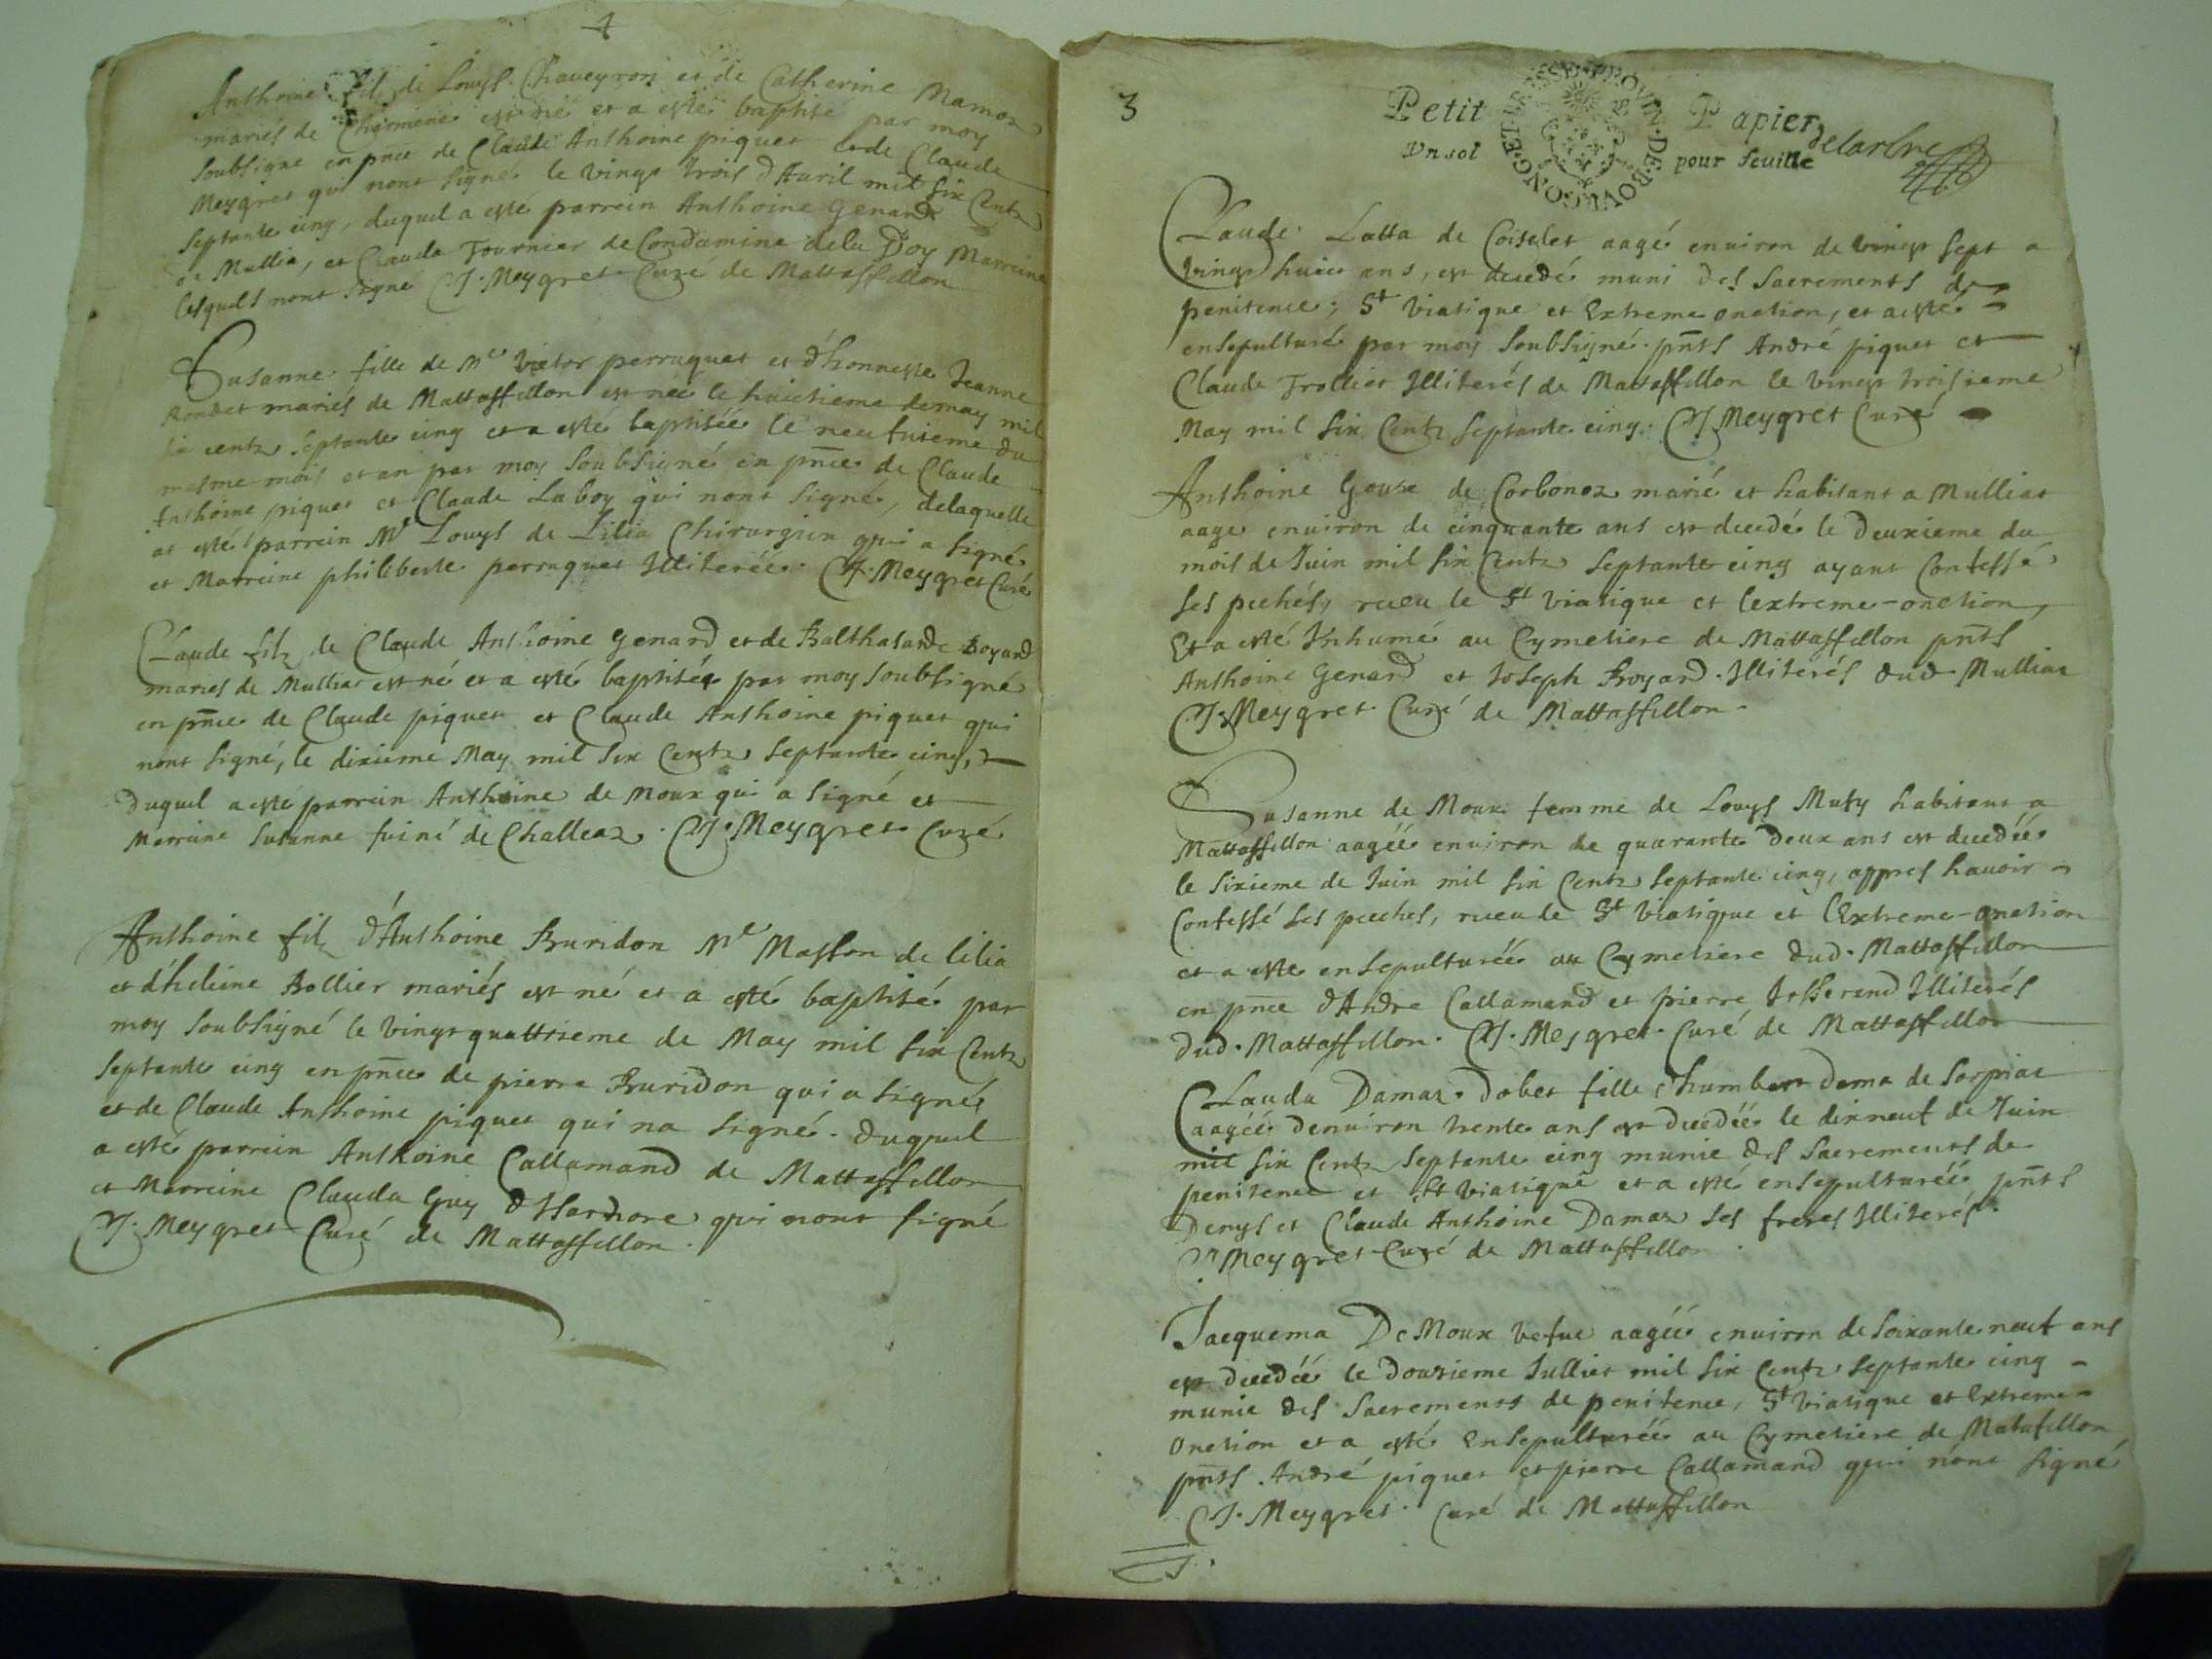 4
Anthoine filz de Louys Chaveyron et de Catherine Mamoz
mariés de Charmene est né et a esté baptisé par moy
soubsigne en pnce de Claude Anthoine piquet et de Claude
Meygret qui nont signé le vingt trois d'Auril mil six Centz
septante cinq, duquel a esté parrein Anthoine Genard
de Mullia, et Clauda Fournier de Condamine dela Doy Marreine
lesquels nont signé CJ. Meygret Curé de Mattaffellon
Susanne fille de Me Victor perruquet et d'honneste Jeanne
Rondet mariés de Mattaffellon est née le huictieme de may mil
six centz septante cinq et a esté baptisée le neufuieme du
mesme mois et an par moy soubsigné en pnce de Claude
Anthoine piquet et Claude Laboy qui nont signé, delaquelle
at esté parrein Me Louys de Lilia Chirurgien qui a signé
et Marreine philiberte perruquet Illiterée. CJ. Meygret Curé
Claude filz de Claude Anthoine Genard et de Balthasarde Boyard
maries de Mulliat est né et a esté baptisée par moy soubsigné
en pnce de Claude piquet et Claude Anthoine piquet qui
nont signé, le dixieme May mil six Centz septante cinq,
duquel a esté parrein Anthoine de Moux qui a signé et
Marreine Susanne de Challeaz. CJ. Meygret Curé
Anthoine filz d'Anthoine Buridon Me Masson de lilia
et d'heleine Bollier mariés est né et a esté baptisé par
moy soubsigné le vingt quattrieme de May mil six Centz
septante cinq en pnce de pierre Buridon qui a signé
et de Claude Anthoine piquet qui na signé. duquel
a esté parrein Anthoine Callamand de Mattaffellon
et Marreine Clauda Guy qui nont signé
CJ. Meygret Curé de Mattaffellon.
3
Petit Papier
Vn sol pour feuille
delarbre
GENERALITE
Claude Latta de Coiselet aagé enuiron de vingt sept a
vingt huict ans, est decedé muni des Sacrements de
penitence, St viatique et Extreme onction, et a esté
ensepulturé par moy soubsigné. pnts André piquet et
Claude Trollier Illiterés de Mataffellon le vingt troisieme
May mil six Centz septante cinq. CJ Meygret Curé
Anthoine Goux de Corbonoz marié et habitant a Mulliat
aage enuiron de cinquante ans est decedé le deuxieme du
mois de Juin mil six Centz septante cinq ayant Confessé
ses pechés, receu le St viatique et lextreme-onction,
Et a esté Inhumé au Cymetiere de Mattaffellon pnts
Anthoine Genard et Joseph Boyard. Illiterés dud Mulliat
CJ. Meygret Curé de Mattaffellon.
Susanne de Moux femme de Louys Muty habitant a
Mattaffellon aagéé enuiron de quarante deux ans est decedéé
le sixieme de Juin mil six Centz septante cinq, appres hauoir
Confessé ses peches, receu le St viatique et l'Extreme-onction
et a esté ensepulturéé au Cymetiere dud. Mattaffellon
en pnce d'Andre Callamand et pierre Josserand Illiterés
dud. Mattaffellon. CJ. Meygret. Curé de Mattaffellon
Clauda Damaz. dobet fille humbert dama de Sorpiat
aagéé denuiron trente ans est decedéé le dixneuf de Juin
mil six Centz septante cinq munie des Sacrements de
penitence et St viatique et a esté ensepulturéé pnts
Denys et Claude Anthoine Damaz ses freres Illiterés.
CJ Meygret Curé de Mattaffellon.
Jacquema De Moux vefue aagéé enuiron de soixante neuf ans
est decedéé le douzieme Julliet mil six Centz septante cinq
munie des Sacrements de penitence, St viatique et Extreme
Onction et a esté Ensepulturéé au Cymetiere de Matafellon
pnts. André piquet et pierre Callamand qui nont signé
CJ. Meygret. Curé de Mattaffellon